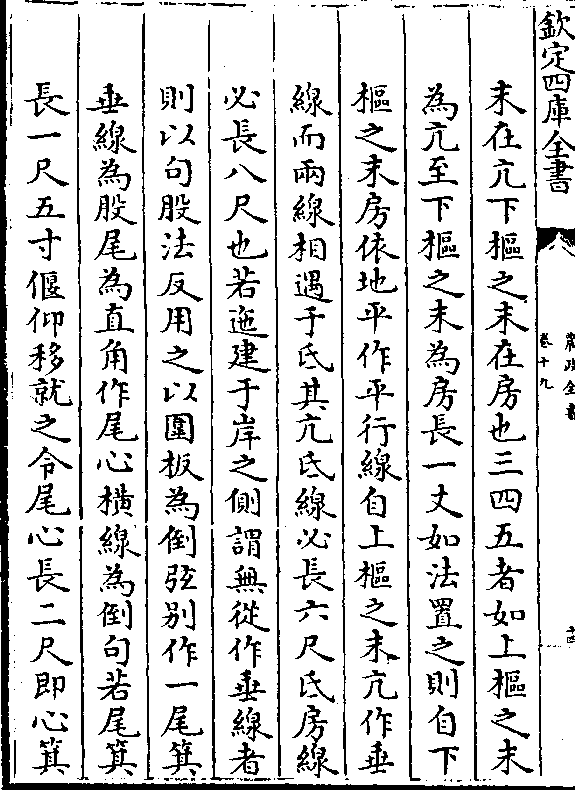 欽定四庫全書
農政全書
卷十九
十四
末在亢下樞之末在房也三四五者如上樞之末
為亢至下樞之末為房長一丈如法置之則自下
樞之末房依地平作平行線自上樞之末亢作垂
線而兩線相遇于氐其亢氐線必長六尺氐房線
必長八尺也若迤建于岸之側謂無從作垂線者
則以句股法反用之以圍板為倒弦别作一尾箕
垂線為股尾為直角作尾心橫線為倒句若尾箕
長一尺五寸偃仰移就之令尾心長二尺即心箕